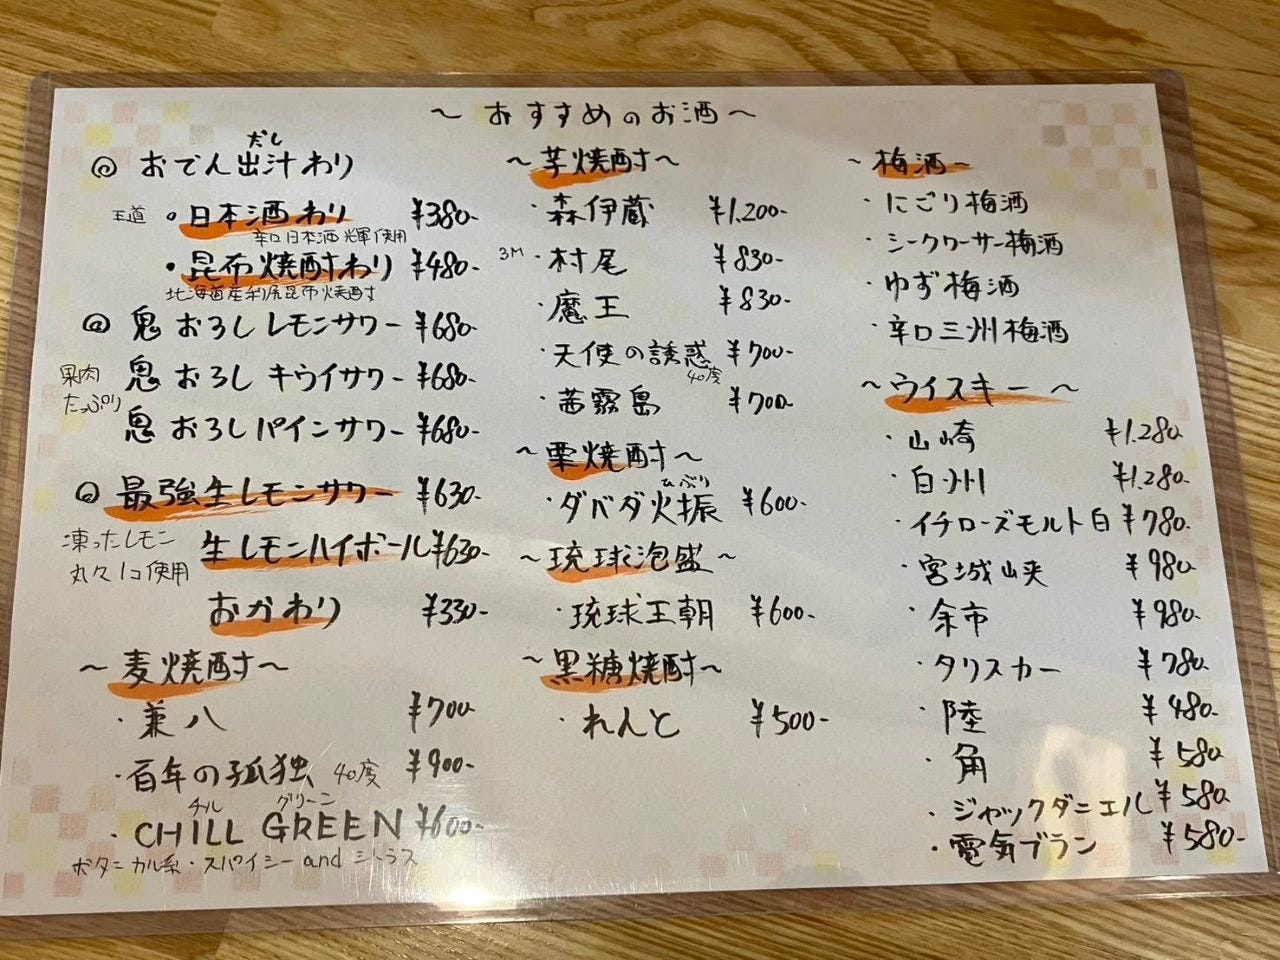 ～おすすめのお酒～
だし
◎ おでん出汁わり
王道 ・日本酒わり ¥380-
辛口日本酒 輝 使用
・昆布焼酎わり ¥480-
北海道産利尻昆布焼酎
◎ 鬼おろしレモンサワー ¥680-
果肉たっぷり
鬼おろしキウイサワー ¥680-
鬼おろしパインサワー ¥680-
◎ 最強生レモンサワー ¥630-
凍ったレモン
丸々1コ使用
生レモンハイボール ¥630-
おかわり ¥330-
～麦焼酎～
・兼八 ¥700
・百年の孤独 40度 ¥900-
チル グリーン
・CHILL GREEN ¥600-
ボタニカル系・スパイシー and シトラス
～芋焼酎～
・森伊蔵 ¥1,200-
3M ・村尾 ¥830-
・魔王 ¥830-
・天使の誘惑 ¥700-
40度
・茜霧島 ¥700
～栗焼酎～
ひぶり
・ダバダ火振 ¥600-
～琉球泡盛～
・琉球王朝 ¥600-
～黒糖焼酎～
・れんと ¥500-
～梅酒～
・にごり梅酒
・シークワーサー梅酒
・ゆず梅酒
・辛口三州梅酒
～ウイスキー～
・山崎 ¥1,280
・白州 ¥1,280
・イチローズモルト白 ¥780
・宮城峡 ¥980
・余市 ¥980
・タリスカー ¥780
・陸 ¥480-
・角 ¥580
・ジャックダニエル ¥580
・電気ブラン ¥580-